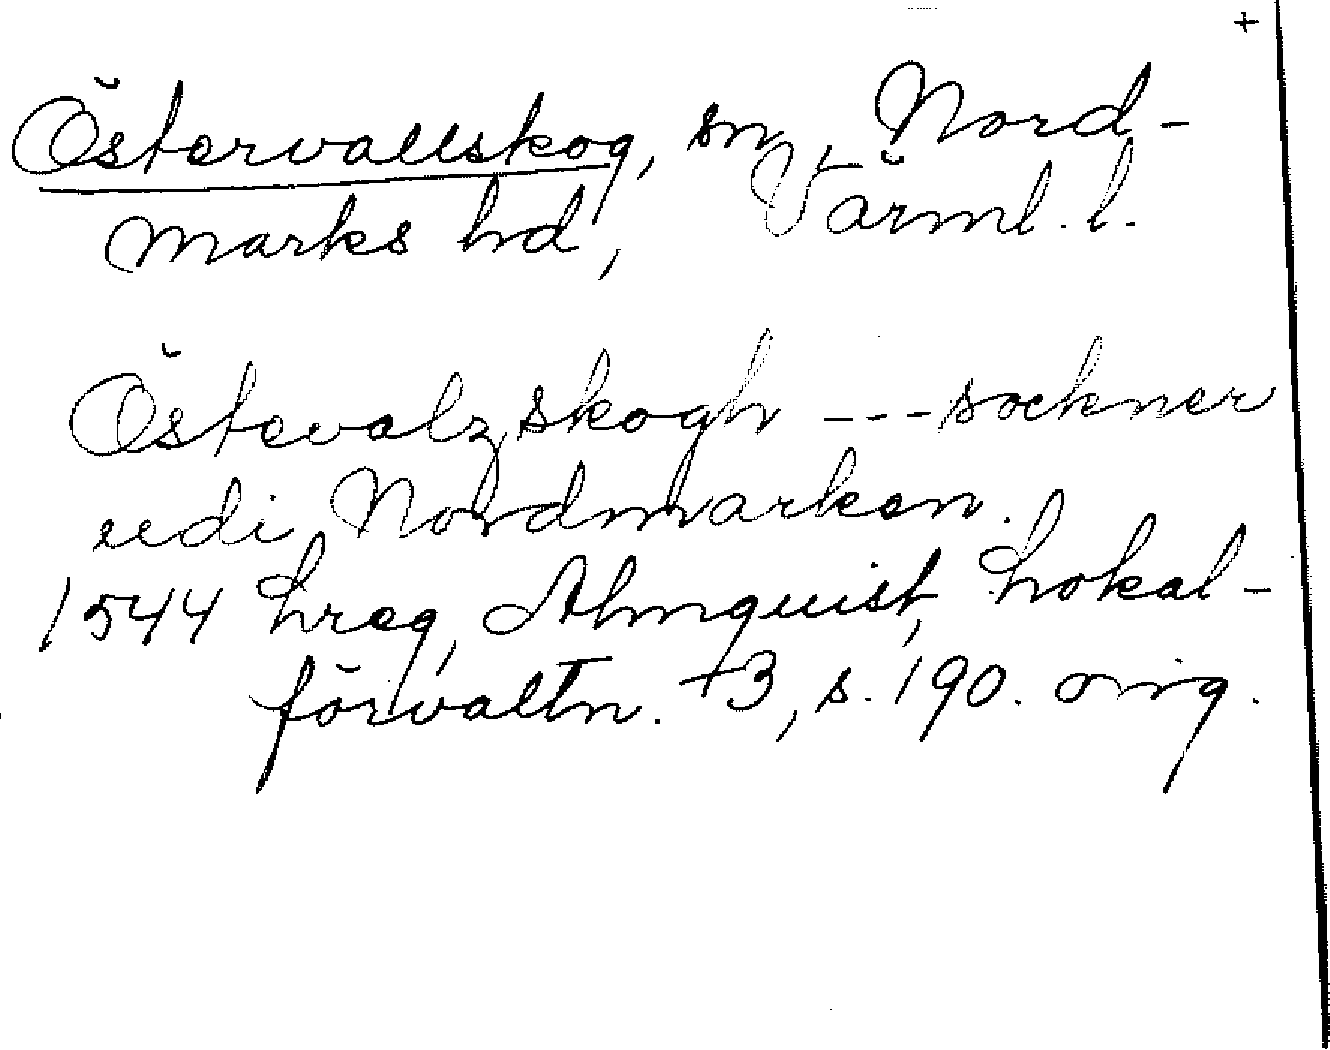 +
Östervallskog, sn, Nord-
marks hd, Värml. l.
Östevalzskogh --- sockner
udi Nordmarken.
1544 hreg, Almquist, Lokal-
förvaltn. +3, s. 190. orig.